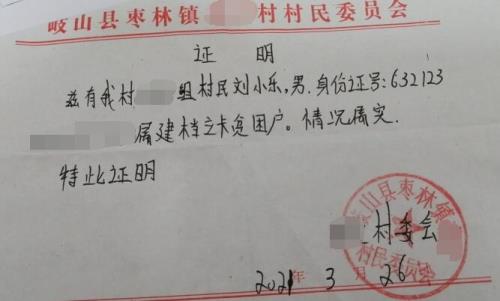 岐山县枣林镇 村村民委员会
证 明
兹有我村 组村民刘小乐，男．身份证号：632123
属建档立卡贫困户。情况属实．
特此证明
岐山县枣林镇
村委会
村民委员会
2021年3月26